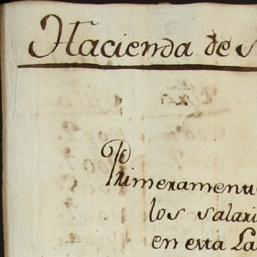 Hacienda de S
Primeramente
los salari
en esta La